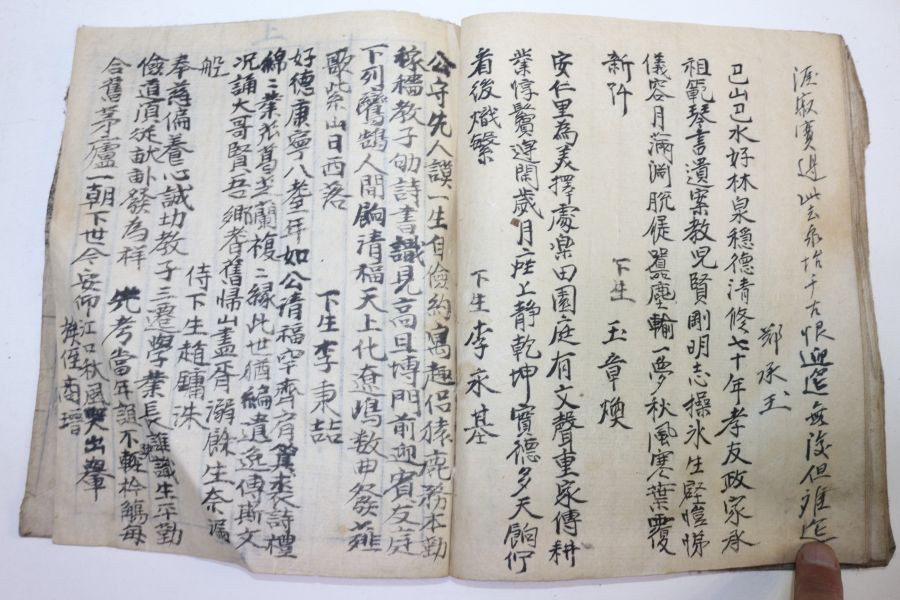 此去永怡千古恨迎筵無後但難迄
鄭承玉
巴山巴水好林泉穩德清修七十年孝友政家承
祖範琴書遺案教兒賢剛明志操氷生壑愷悌
儀容月滿淵脫促囂塵輸一夢秋風寒葉覆
新阡
下生 玉章煥
安仁里為美擇處樂田園庭有文聲重家傳耕
業惇鬢邊閑歲月座上靜乾坤實德多天餉佇
看後熾繁
下生李永基
公守先人謨一生自儉約寓趣侶猿鹿務本勤
稼穡教子劬詩書識見高且博門前迎賓友庭
下列鸞鵠人間餉清福天上化遼鳩数曲發薤
歌紫山日西落
下生李秉喆
好德康寧八耋年如公清福罕齊肩箕裘詩禮
綿二業芝蘭複二緣此世猶編遺逸傳斯文
況誦大哥賢吾鄉耆舊歸山盡胥溺餘生奈漏
船
侍下生趙鏞洙
奉慈偏養心誠切教子三遷學業長誰識生平勤
儉道須從献發為祥 先考當年誼不輕衿觴每
合舊茅廬一朝下世今安仰江口秋風哭出轝